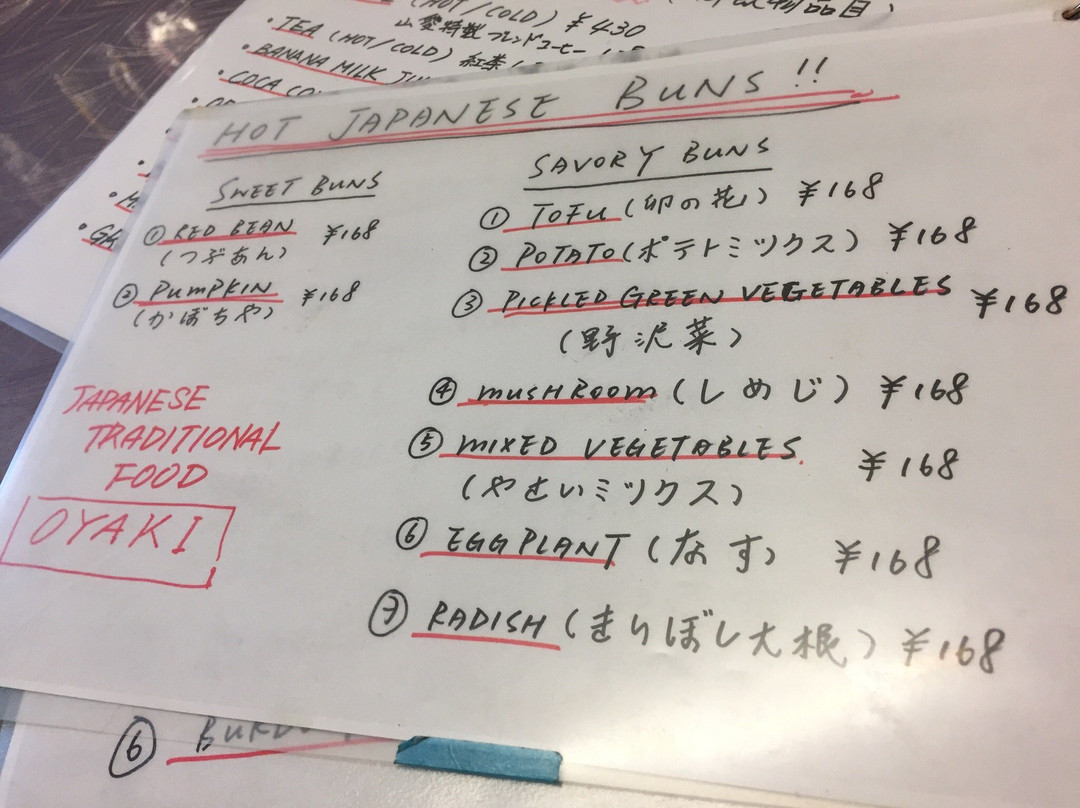 (HOT/COLD) ¥430
山愛特製ブレンドコーヒー
・TEA (HOT/COLD) 紅茶
・BANANA MILK
・COCA
HOT JAPANESE BUNS!!
SWEET BUNS
① RED BEAN ¥168
(つぶあん)
② PUMPKIN ¥168
(かぼちゃ)
JAPANESE
TRADITIONAL
FOOD
OYAKI
SAVORY BUNS
① TOFU (卯の花) ¥168
② POTATO (ポテトミックス) ¥168
③ PICKLED GREEN VEGETABLES ¥168
(野沢菜)
④ MUSHROOM (しめじ) ¥168
⑤ MIXED VEGETABLES ¥168
(やさいミックス)
⑥ EGGPLANT (なす) ¥168
⑦ RADISH (きりぼし大根) ¥168
⑥